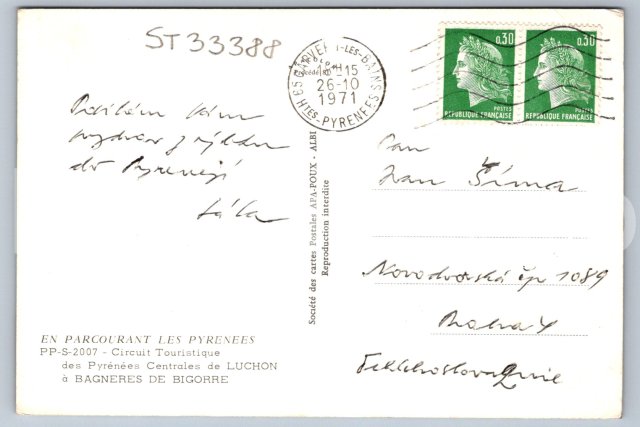 ST33388
0.30
0.30
POSTES
REPUBLIQUE FRANÇAISE
POSTES
REPUBLIQUE FRANÇAISE
26-10
1971
HTES-PYRENEES
Posílám Vám
pozdrav z výletu
do Pyrenejí
Pan
Ivan Šíma
Novodvorská čp 1089
Praha 4
Société des cartes Postales APA-POUX - ALBI
Reproduction interdite
EN PARCOURANT LES PYRENEES
PP-S-2007 - Circuit Touristique
des Pyrénées Centrales de LUCHON
à BAGNERES DE BIGORRE